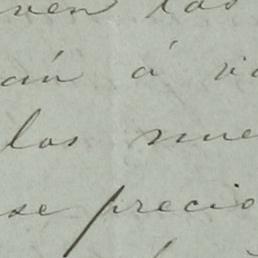 ven los
án á vi
los nue
se precio